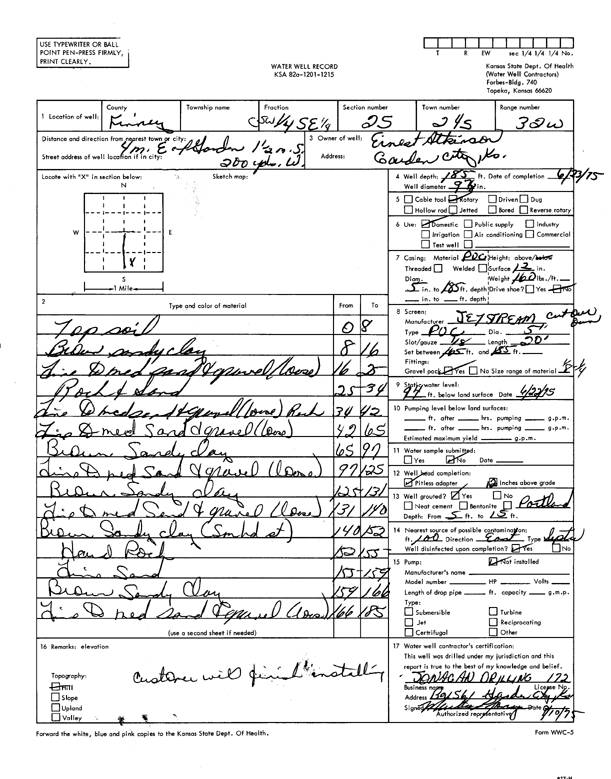 USE TYPEWRITER OR BALL
POINT PEN-PRESS FIRMLY,
PRINT CLEARLY.
T R EW sec 1/4 1/4 1/4 No.
WATER WELL RECORD
KSA 82a-1201-1215
Kansas State Dept. Of Health
(Water Well Contractors)
Forbes-Bldg. 740
Topeka, Kansas 66620
1 Location of well:
County
Finney
Township name
Fraction
SW 1/4 SE 1/4
Section number
25
Town number
24S
Range number
32W
Distance and direction from nearest town or city:
4 m. E of Garden 1 1/2 m. S.
Street address of well location if in city:
200 yds. W.
3 Owner of well: Ernest Atkinson
Address: Garden City, Ks.
Locate with "X" in section below:
Sketch map:
N
W E
X
S
1 Mile
4 Well depth: 185 ft. Date of completion
Well diameter in.
5 Cable tool Rotary Driven Dug
Hollow rod Jetted Bored Reverse rotary
6 Use: Domestic Public supply Industry
Irrigation Air conditioning Commercial
Test well
7 Casing: Material PVC Height: above/below
Threaded Welded Surface 12 in.
Diam. Weight 160 lbs./ft.
5 in. to 185 ft. depth Drive shoe? Yes No
in. to ft. depth
2 Type and color of material From To
Top soil 0 8
Brown sandy clay 8 16
Fine to med sand & gravel (loose) 16 25
Rock & Sand 25 34
Fine to med sand & gravel (loose) Rock 34 42
Fine to med Sand & gravel (loose) 42 65
Brown Sandy Clay 65 97
Fine to med Sand & gravel (loose) 97 125
Brown Sandy clay 125 131
Fine to med Sand & gravel (loose) 131 140
Brown Sandy clay (Smhd st) 140 152
Hard Rock 152 155
Fine Sand 155 159
Brown Sandy Clay 159 166
Fine to med sand & gravel (loose) 166 185
(use a second sheet if needed)
8 Screen:
Manufacturer JETSTREAM
Type PVC Dia. 5"
Slot/gauze 1/8 Length 20'
Set between 165 ft. and ft.
Fittings:
Gravel pack Yes No Size range of material
9 Static water level:
94 ft. below land surface Date
10 Pumping level below land surfaces:
ft. after hrs. pumping g.p.m.
ft. after hrs. pumping g.p.m.
Estimated maximum yield g.p.m.
11 Water sample submitted:
Yes No Date
12 Well head completion:
Pitless adapter Inches above grade
13 Well grouted? Yes No
Neat cement Bentonite Portland
Depth: From 5 ft. to 15 ft.
14 Nearest source of possible contamination:
ft. 100 Direction East Type septic
Well disinfected upon completion? Yes No
15 Pump: Not installed
Manufacturer's name
Model number HP Volts
Length of drop pipe ft. capacity g.m.p.
Type:
Submersible Turbine
Jet Reciprocating
Certrifugal Other
16 Remarks: elevation
customer will finish installing
Topography:
Hill
Slope
Upland
Valley
17 Water well contractor's certification:
This well was drilled under my jurisdiction and this
report is true to the best of my knowledge and belief.
JONAGAN DRILLING 172
Business name License No.
Address Bx 1561 Garden City, Ks
Signed Date
Authorized representative
Forward the white, blue and pink copies to the Kansas State Dept. Of Health.
Form WWC-5